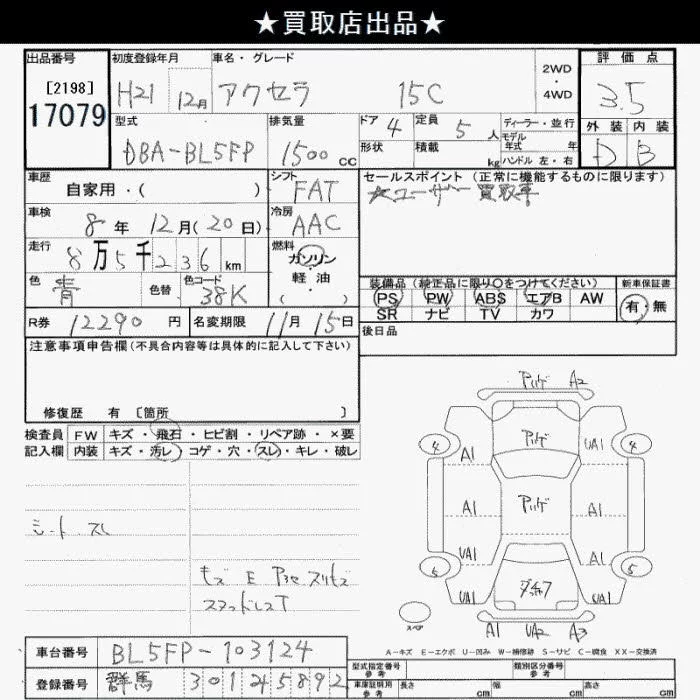 ★買取店出品★
出品番号 初度登録年月 車名・グレード 2WD・4WD 評価点
[2198] 17079 H21 12月 アクセラ 15C 3.5
型式 排気量 ドア 4 定員 5人 ディーラー・並行 外装 内装
DBA-BL5FP 1500cc 形状 積載 kg モデル年式 年 D B
ハンドル 左・右
車歴 シフト セールスポイント(正常に機能するものに限ります)
自家用・( ) FAT ☆ユーザー買取車
車検 冷房
8年 12月(20日) AAC
走行 燃料
8万5千236km ガソリン・軽油・( )
色 色替 色コード 装備品(純正品に限り○をつけてください) 新車保証書
青 38K PS PW ABS エアB AW 有・無
SR ナビ TV カワ
R券 12290円 名変期限 11月15日 後日品
注意事項申告欄(不具合内容等は具体的に記入して下さい)
修復歴 有 [箇所 ]
検査員 FW キズ・飛石・ヒビ割・リペア跡・×要
記入欄 内装 キズ・汚レ・コゲ・穴・スレ・キレ・破レ
シート スレ
アリゲ A2
4 アリゲ 4
A1 UA1
A1 アリゲ A1
UA1 A1
5 5
UA1 UA1
A1 UA2 A3
スペア
A-キズ E-エクボ U-凹み W-補修跡 S-サビ C-腐食 XX-交換済
車台番号 BL5FP-103124 型式指定番号 参考 類別区分番号 参考
登録番号 群馬 301 そ 5892 車庫証明用 参考 長さ cm 幅 cm 高さ cm